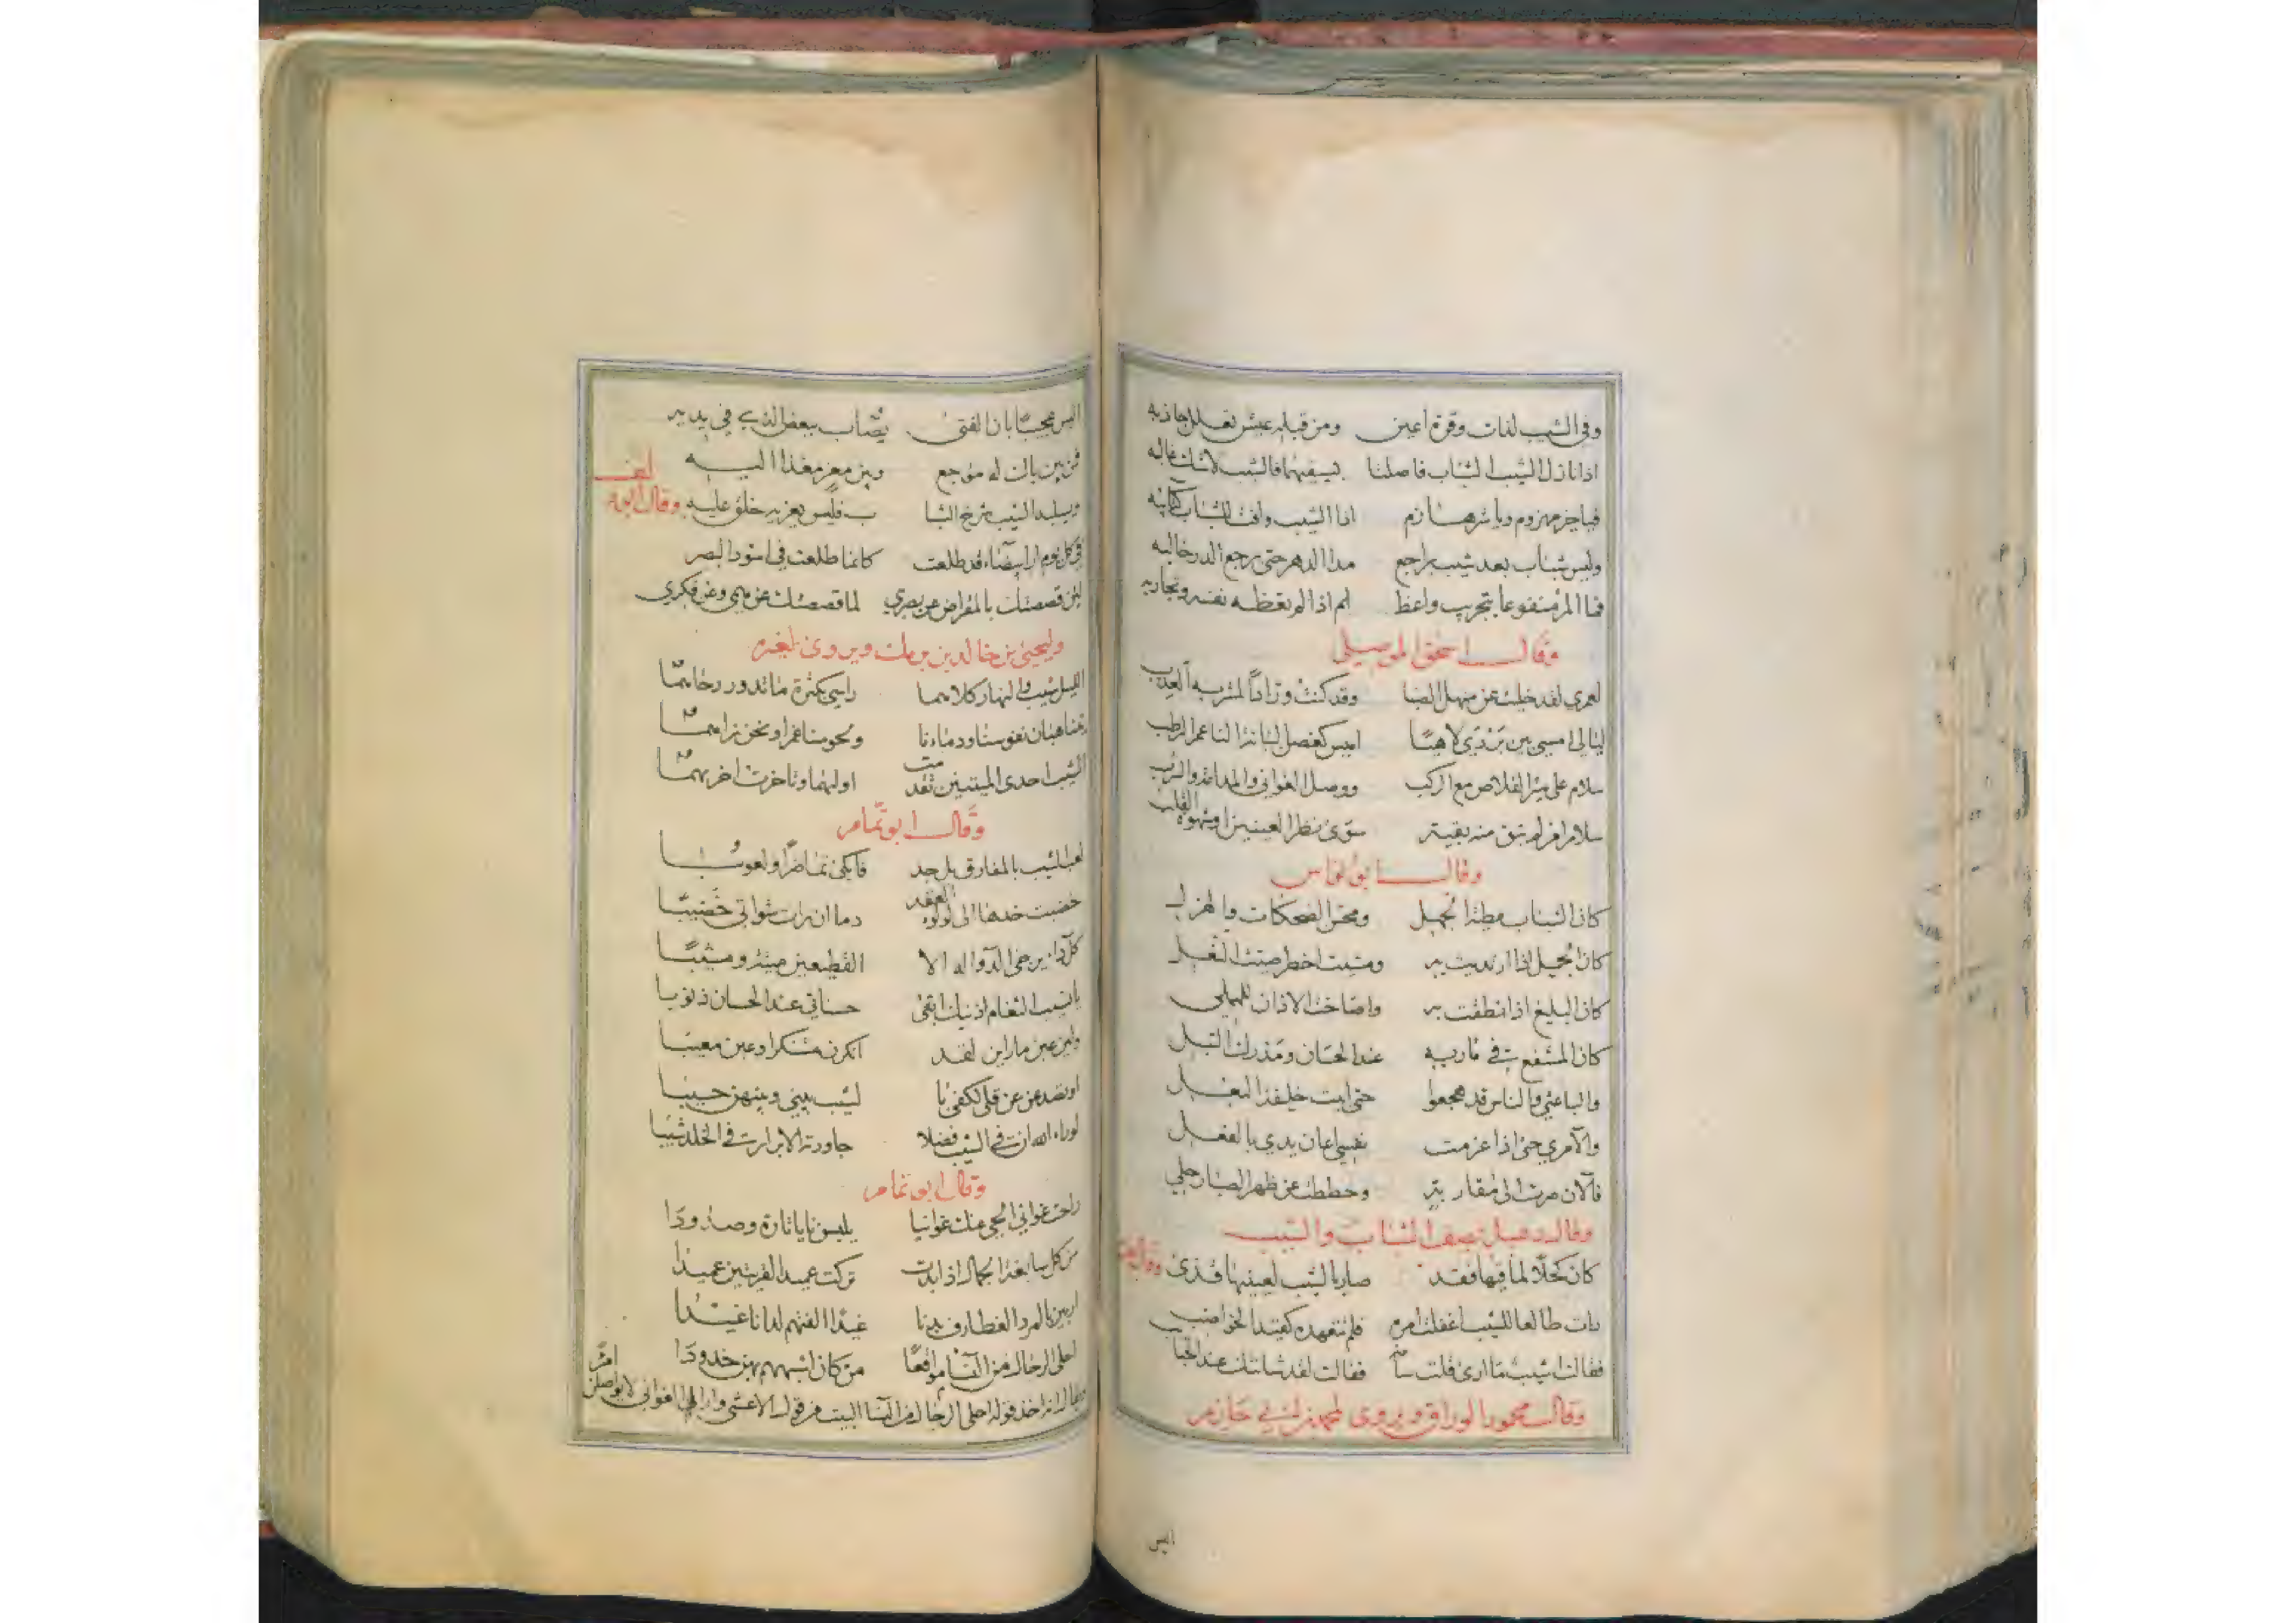 وفي الشيب لذات وقرة اعين ومن قبله عيش تعلل جاذبه
اذا نازل الشيب الشباب فاصلتا بسيفيهما فالشيب لا شك غالبه
فيا خير مهزوم ويا شر هازم اذا الشيب وافت للشباب كتائبه
وليس شباب بعد شيب براجع مدا الدهر حتى يرجع الدر حالبه
فما المرء منفوعا بتجريب واعظ اذا لم تعظه نفسه وتجاربه
وقال اسحق الموصلي
لعمري لقد حليت عن منهل الصبا وقد كنت ورادا لمشربه العذب
ليالي امسي بين بردي لاهيا اميس كغصن البانة الناعم الرطب
سلام على سير القلاص مع الركب ووصل الغواني والمدامة والشرب
سلام امرء لم تبق منه بقية سوى نظر العينين او شهوة القلب
وقال ابو نواس
كان الشباب مطية الجهل ومحسن الضحكات والهزل
كان الجميل اذا ارتديت به ومشيت اخطر صيت النعل
كان البليغ اذا نطقت به واصاخت الاذان للمملي
كان المشفع في مآربه عند الحسان ومدرك التبل
والباعثي والناس قد هجعوا حتى ابيت خليفة البعل
والآمري حتى اذا عزمت نفسي اعان يدي بالفعل
فالآن صرت الى مقاربة وحططت عن ظهر الصبا رحلي
وقال دعبل يصف الشباب والشيب
كان كحلا لماقيها فقد صار بالشيب لعينيها قذى وقال
بات طالعا للشيب اغفلت امره فلم تتعهده كف الخواضب
فقالت اشيب ما ارى قلت شامة فقالت لقد شانتك عند الحبايب
وقال محمود الوراق ويروى لمحمد بن ابي حازم
اليس
اليس عجيبا بان الفتى يصاب ببعض الذي في يديه
فمن بين باك له موجع وبين معز مغذ اليه
ويسلبه الشيب شرخ الشبا ب فليس يعزيه خلق عليه وقال ابو دلف
في كل يوم ارى بيضاء قد طلعت كانما طلعت في اسود البصر
لئن قصصتك بالمقراض عن بصري لما قصصتك عن همي وعن فكري
وليحيى بن خالد بن برمك ويروى لغيره
الليل شيب والنهار كلاهما راسي بكثرة ما تدور رحاهما
يتناهبان نفوسنا ودماءنا ولحومنا عمرا ونحن نراهما
الشيب احدى الميتتين تقدمت اولهما وتاخرت اخرهما
وقال ابو تمام
لعب الشيب بالمفارق بل جد فابكى تماضرا ولعوبا
خضبت خدها الى لؤلؤ العقد دما ان رات شواتي خضيبا
كل داء يرجى الدواء له الا الفظيعين ميتة ومشيبا
يا نسيب الثغام ذنبك ابقى حسناتي عند الحسان ذنوبا
ولئن عبن ما راين لقد انكرن مستنكرا وعبن معيبا
او تصدعن عن قلى لكفى با لشيب بيني وبينهن حسيبا
لو راى الله ان في الشيب فضلا جاورته الابرار في الخلد شيبا
وقال ابو تمام
راحت غواني الحي عنك غوانيا يلبسن نايا تارة وصدودا
من كل سابغة الجمال اذا بدت تركت عميد القريتين عميدا
اربين بالمرد الغطارف بدنا غيدا الفتهم لدانا غيدا
احلى الرجال من النساء مواقعا من كان اشبههم بهن خدودا
يقال انه اخذ قوله احلى الرجال من النساء البيت من قول الاعشى وارى الغواني لا يواصلن امرء